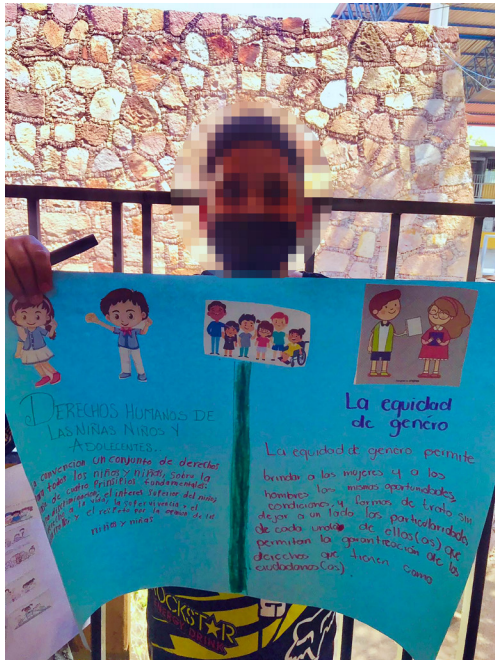 DERECHOS HUMANOS DE
LAS NIÑAS NIÑOS Y
ADOLECENTES.
convención un conjunto de derechos
todos los niños y niñas, sobre la
de cuatro principios fundamentales:
discriminación, el interes superior del niño,
la vida, la supervivencia y el
y el respeto por la opinión de los
niños y niñas
La equidad
de género
La equidad de género permite
brindar a las mujeres y a los
hombres las mismas oportunidades,
condiciones, y formas de trato sin
dejar a un lado las particularidades
de cada uno(a) de ellos(as) que
permitan la garantización de los
derechos que tienen como
ciudadanos(as).
ROCKSTAR
ENERGY DRINK